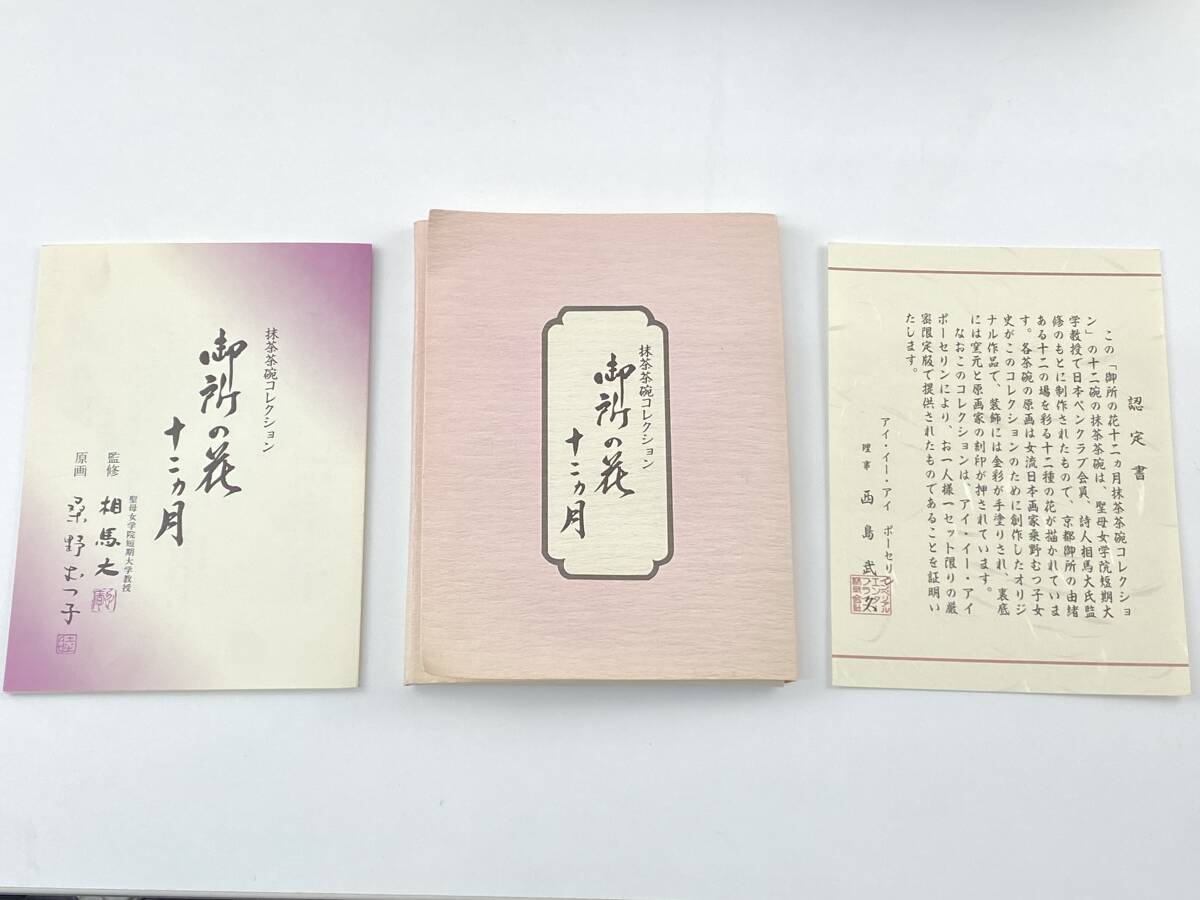 抹茶茶碗コレクション
御所の花
十二ヵ月
聖母女学院短期大学教授
監修 相馬大
原画 桑野むつ子
抹茶茶碗コレクション
御所の花
十二ヵ月
認定書
この「御所の花十二ヵ月抹茶茶碗コレクショ
ン」の十二碗の抹茶茶碗は、聖母女学院短期大
学教授で日本ペンクラブ会員、詩人相馬大氏監
修のもとに制作されたもので、京都御所の由緒
ある十二の場を彩る十二種の花が描かれていま
す。各茶碗の原画は女流日本画家桑野むつ子女
史がこのコレクションのために創作したオリジ
ナル作品で、装飾には金彩が手塗りされ、裏底
には窯元と原画家の刻印が押されています。
なおこのコレクションは、アイ・イー・アイ
ポーセリンにより、お一人様一セット限りの厳
密限定版で提供されたものであることを証明い
たします。
アイ・イー・アイ ポーセリン
理事 西島武